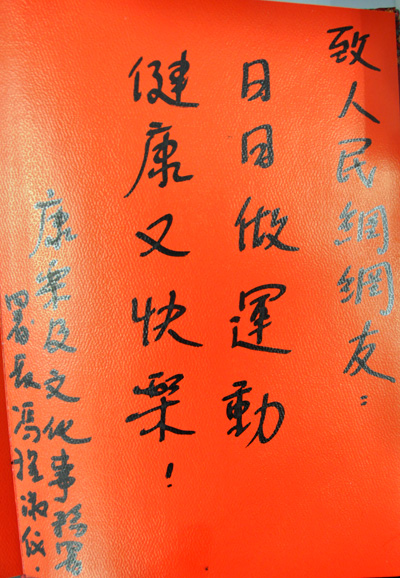 致人民網網友：
日日做運動
健康又快樂！
康樂及文化事務署
署長馮程淑儀.